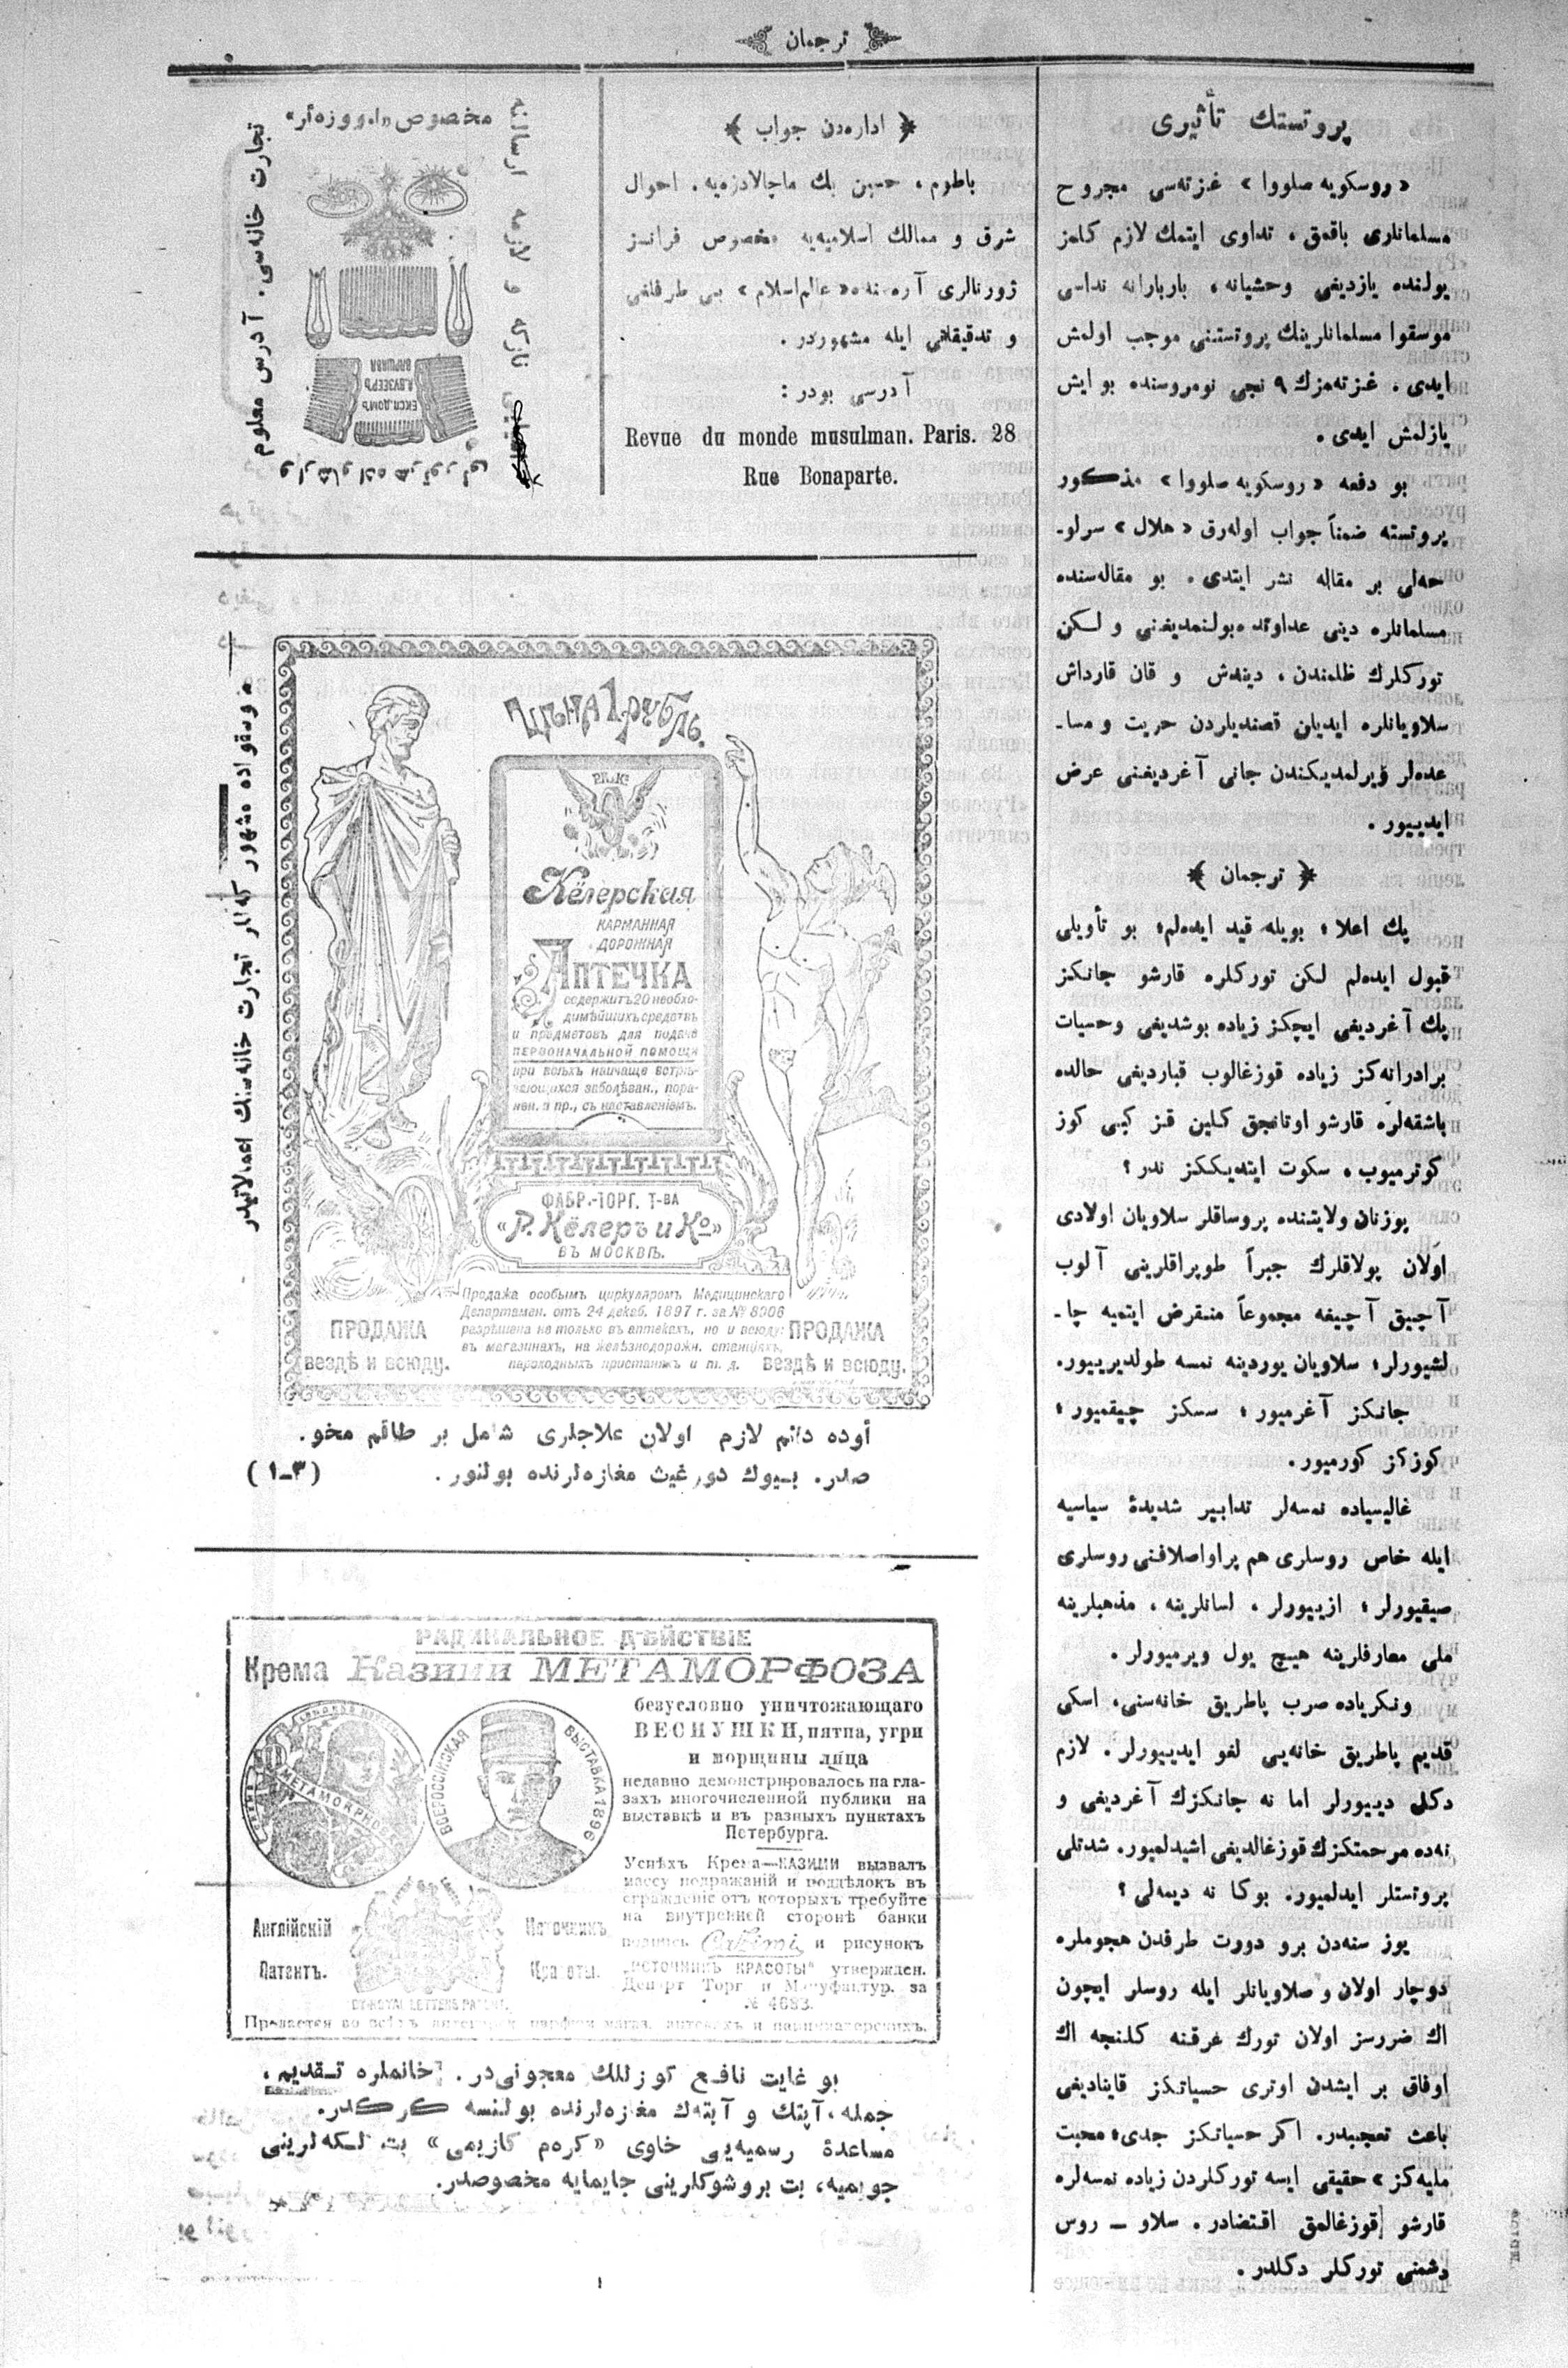 ترجمان
پروتستك تأثیری
« روسكویه صلووا » غزته‌سی مجروح
مسلمانلری باقمق ، تداوی ایتمك لازم كلمز
یولنده یازدیغی وحشیانه ، باربارانه نداسی
موسقوا مسلمانلرینك پروتستنی موجب اولمش
ایدی . غزته‌مزك ۹ نجی نومروسنده بو ایش
یازلمش ایدی .
بو دفعه « روسكویه صلووا » مذكور
پروتسته ضمناً جواب اوله‌رق « هلال » سرلو-
حه‌لی بر مقاله نشر ایتدی . بو مقاله‌سنده
مسلمانلره دینی عداوتده بولنمدیغنی و لكن
توركلرك ظلمندن ، دینداش و قان قارداش
سلاویانلره ایدیلن قصدیلردن حریت و مسا-
عده‌لر ویرلمدیكندن جانی آغردیغنی عرض
ایدییور .
ترجمان
پك اعلا ؛ بویله قید ایده‌لم ؛ بو تأویلی
قبول ایده‌لم لكن توركلره قارشو جانكز
پك آغردیغی ایچكز زیاده بوشدیغی وحسیات
برادرانه‌كز زیاده قوزغالوب قباردیغی حالده
باشقه‌لره قارشو اوتانجق كلین قز كبی كوز
كوترمیوب ، سكوت ایتدیككز ندر ؟
پوزنان ولایتنده پروساقلر سلاویان اولادی
اولان پولاقلرك جبراً طوپراقلرینی آلوب
آچیق آچیغه مجموعاً منقرض ایتمیه چا-
لشیورلر ؛ سلاویان یوردینه نمسه طولدیرییور.
جانكز آغرمیور ؛ سسكز چیقمیور ؛
كوزكز كورمیور.
غالیسیاده نمسه‌لر تدابیر شدیدهٔ سیاسیه
ایله خاص روسلری هم پراواصلافنی روسلری
صیقیورلر ؛ ازییورلر ، لسانلرینه ، مذهبلرینه
ملی معارفلرینه هیچ یول ویرمیورلر .
ونكریاده صرب پاطریق خانه‌سنی، اسكی
قدیم پاطریق خانه‌یی لغو ایدییورلر . لازم
دكل دییورلر اما نه جانكزك آغردیغی و
نه‌ده مرحمتكزك قوزغالدیغی اشیدلمیور. شدتلی
پروتستلر ایدلمیور. بوكا نه دیمه‌لی ؟
یوز سنه‌دن برو دورت طرفدن هجوملره
دوچار اولان و صلاویانلر ایله روسلر ایچون
اك ضررسز اولان تورك عرقنه كلنجه اك
اوفاق بر ایشدن اوتری حسیاتكز قاینادیغی
باعث تعجبدر. اكر حسیاتكز جدی ؛ محبت
ملیه‌كز » حقیقی ایسه توركلردن زیاده نمسه‌لره
قارشو قوزغالمق اقتضادر . سلاو – روس
دشمنی توركلر دكلدر .
اداره‌دن جواب
باطوم ، حسین بك ماچالادزه‌یه . احوال
شرق و ممالك اسلامیه‌یه مخصوص فرانسز
ژورنالری آره‌سنده « عالم اسلام » بی طرفلغی
و تدقیقاتی ایله مشهوردر .
آدرسی بودر :
Revue du monde musulman. Paris. 28
Rue Bonaparte.
مخصوص
تجارت خانه‌سی . آدرس معلوم
ЕКСП.ДОМЪ
А.ВУЗЕЕРЪ
ВАРШАВА
موسقواده مشهور كه‌لر تجارت خانه‌سنك اعمالاتیدر
ЦѢНА 1 РУБЛЬ.
Р.К.&Ко
Кёлерская
КАРМАННАЯ
ДОРОЖНАЯ
АПТЕЧКА
содержитъ 20 необхо-
димѣйшихъ средствъ
и предметовъ для подачи
ПЕРВОНАЧАЛЬНОЙ ПОМОЩИ
при всѣхъ наичаще встрѣ-
чающихся заболѣван., пора-
нен. и пр., съ наставленіемъ.
ФАБР.-ТОРГ. Т-ВА
«Р. Кёлеръ и Ко»
ВЪ МОСКВѢ.
Продажа особымъ циркуляромъ Медицинскаго
Департамен. отъ 24 декаб. 1897 г. за № 8906
разрѣшена не только въ аптекахъ, но и всюду:
въ магазинахъ, на желѣзнодорожн. станціяхъ,
пароходныхъ пристаняхъ и т. д.
ПРОДАЖА
вездѣ и всюду.
ПРОДАЖА
вездѣ и всюду.
أوده دائم لازم اولان علاجلری شامل بر طاقم مخو.
صدر. بیوك دورغیث مغازه‌لرنده بولنور .
(۳-۱)
РАДИКАЛЬНОЕ ДѢЙСТВІЕ
Крема Казими МЕТАМОРФОЗА
безусловно уничтожающаго
ВЕСНУШКИ, пятна, угри
и морщины лица
недавно демонстрировалось на гла-
захъ многочисленной публики на
выставкѣ и въ разныхъ пунктахъ
Петербурга.
METAMORPHO
ВСЕРОССІЙСКАЯ ВЫСТАВКА 1896
Успѣхъ Крема—КАЗИМИ вызвалъ
массу подражаній и поддѣлокъ въ
огражденіе отъ которыхъ требуйте
на внутренней сторонѣ банки
подпись Cazimi и рисунокъ
„ИСТОЧНИКЪ КРАСОТЫ“ утвержден.
Департ Торг. и Мануфактур. за
№ 4683.
Англійскій
Патентъ.
Источникъ
Красоты.
BY ROYAL LETTERS PATENT.
بو غایت نافع كوزللك معجونی‌در. خانملره تقدیم ،
جمله ، آپتك و آپته‌ك مغازه‌لرنده بولنسه كركدر.
مساعدهٔ رسمیه‌یی حاوی « كره‌م كازیمی » بت لكه‌لرینی
جویمیه ، بت بروشوكلرینی جایمایه مخصوصدر.